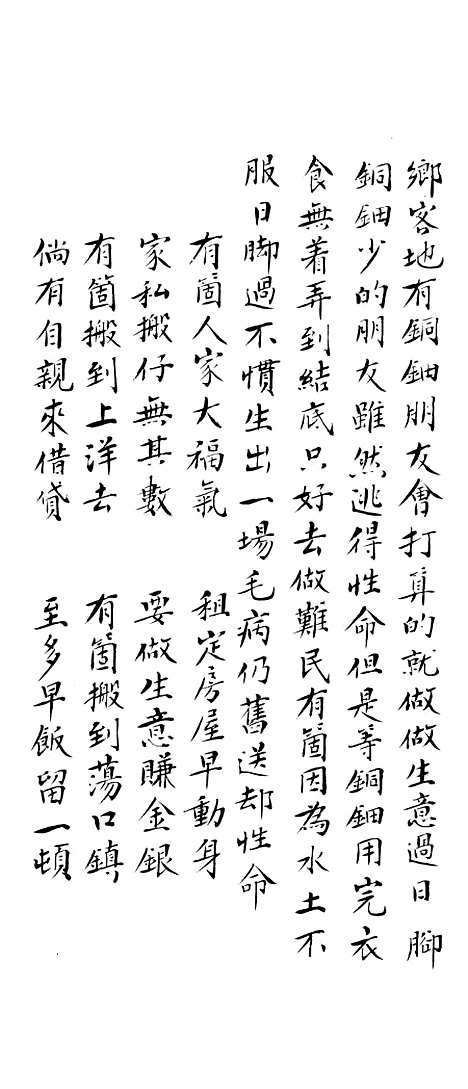 鄉客地有銅鈿朋友會打算的就做做生意過日脚
銅鈿少的朋友雖然逃得性命但是等銅鈿用完衣
食無着弄到結底只好去做難民有箇因為水土不
服日脚過不慣生出一場毛病仍舊送却性命
有箇人家大福氣　租定房屋早動身
家私搬仔無其數　要做生意賺金銀
有箇搬到上洋去　有箇搬到蕩口鎮
倘有自親來借貸　至多早飯留一頓